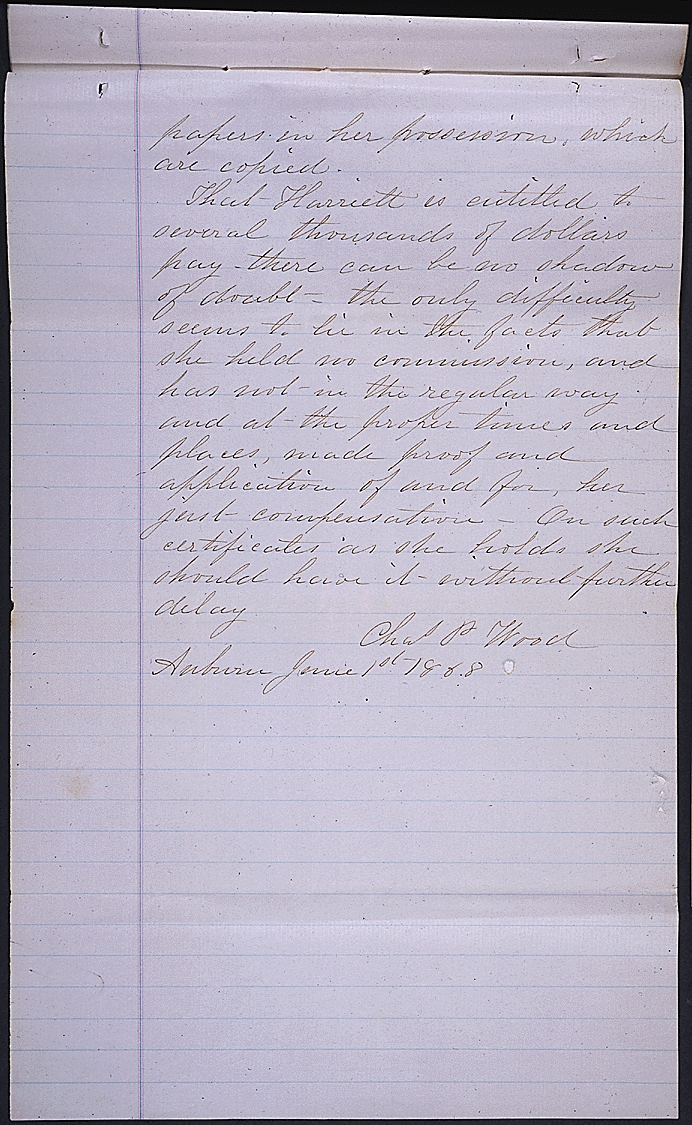 papers in her possession, which
are copied.
That Harriett is entitled to
several thousands of dollars
pay - there can be no shadow
of doubt - the only difficulty
seems to lie in the facts that
she held no commission, and
has not in the regular way
and at the proper times and
places, made proof and
application of and for, her
just compensation - On such
certificates as she holds she
should have it without further
delay
Chas P Wood
Auburn June 1st 1868